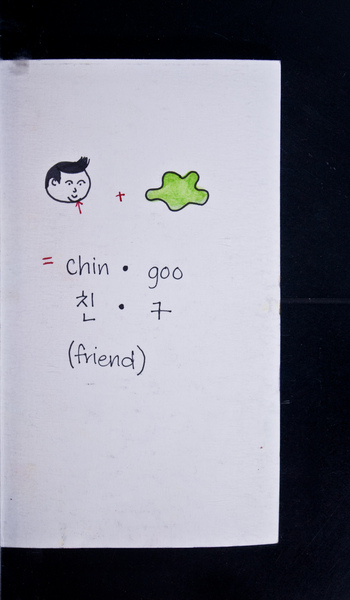 +
= chin • goo
친 • 구
(friend)